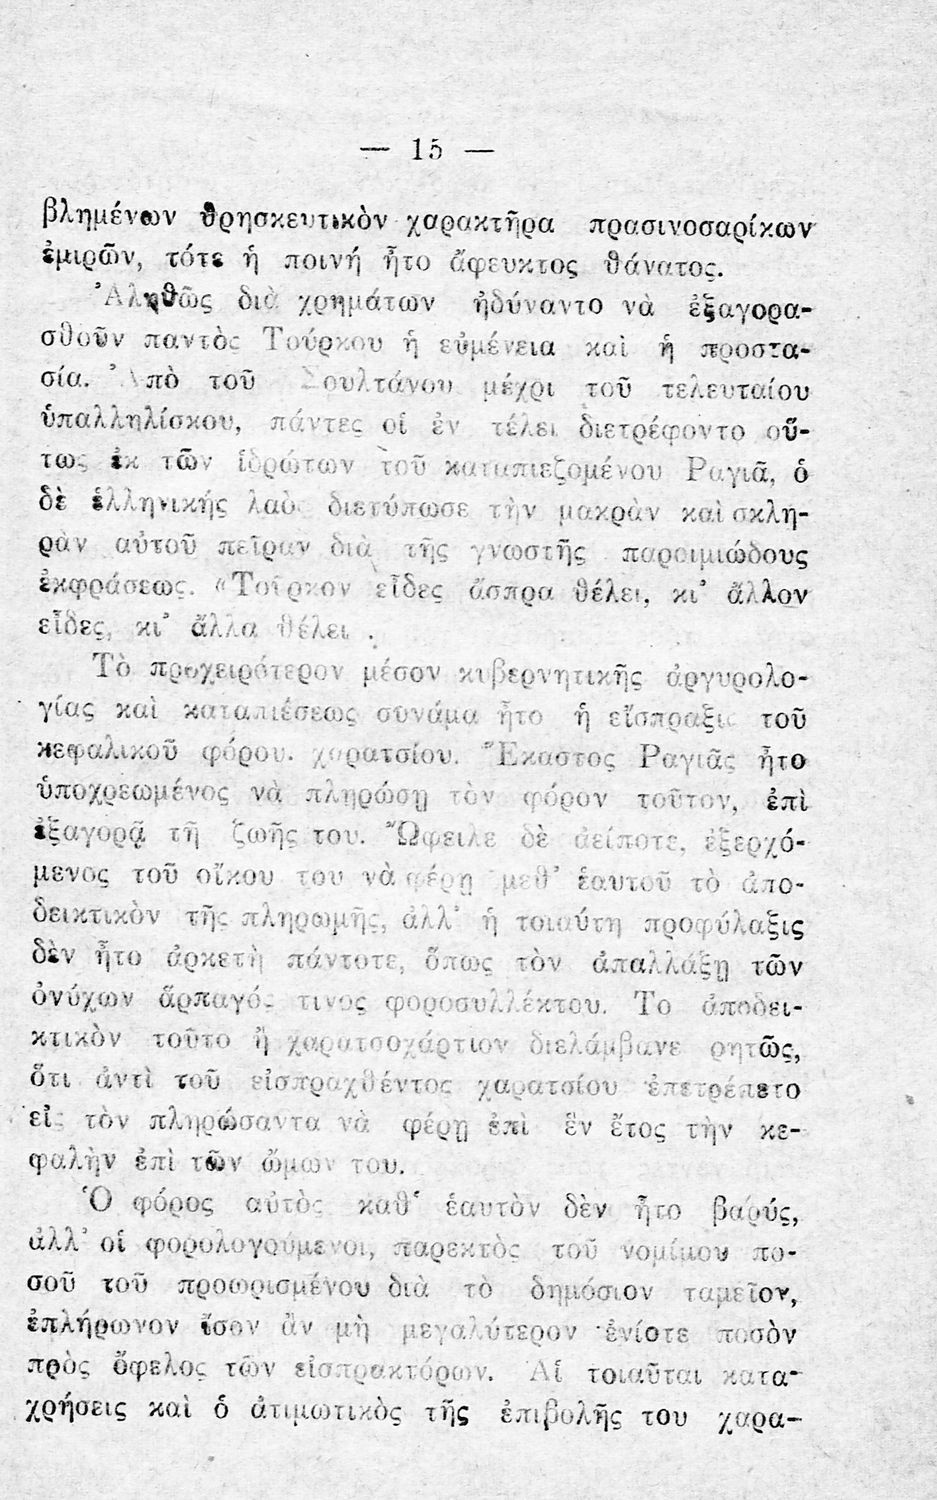 — 15 —
βλημένων θρησκευτικὸν χαρακτῆρα πρασινοσαρίκων
ἐμιρῶν, τότε ἡ ποινή ἦτο ἄφευκτος θάνατος.
Ἀληθῶς διὰ χρημάτων ἠδύναντο νὰ ἐξαγορα-
σθοῦν παντὸς Τούρκου ἡ εὐμένεια καὶ ἡ προστα-
σία. Ἀπὸ τοῦ Σουλτάνου μέχρι τοῦ τελευταίου
ὑπαλληλίσκου, πάντες οἱ ἐν τέλει διετρέφοντο οὕ-
τως ἐκ τῶν ἱδρώτων τοῦ καταπιεζομένου Ραγιᾶ, ὁ
δὲ ἑλληνικής λαὸς διετύπωσε τὴν μακρὰν καὶ σκλη-
ρὰν αὐτοῦ πεῖραν διὰ τῆς γνωστῆς παροιμιώδους
ἐκφράσεως. «Τοῦρκον εἶδες ἄσπρα θέλει, κι᾽ ἄλλον
εἶδες, κι᾽ ἄλλα θέλει .
Τὸ προχειρότερον μέσον κυβερνητικῆς ἀργυρολο-
γίας καὶ καταπιέσεως συνάμα ἦτο ἡ εἴσπραξις τοῦ
κεφαλικοῦ φόρου. χαρατσίου. Ἕκαστος Ραγιᾶς ἦτο
ὑποχρεωμένος νὰ πληρώσῃ τὸν φόρον τοῦτον, ἐπὶ
ἐξαγορᾷ τῆ ζωῆς του. Ὤφειλε δὲ ἀείποτε, ἐξερχό-
μενος τοῦ οἴκου του νὰ φέρῃ μεθ᾽ ἑαυτοῦ τὸ ἀπο-
δεικτικὸν τῆς πληρωμῆς, ἀλλ᾽ ἡ τοιαύτη προφύλαξις
δὲν ἦτο ἀρκετὴ πάντοτε, ὅπως τὸν ἀπαλλάξῃ τῶν
ὀνύχων ἅρπαγός τινος φοροσυλλέκτου. Το ἀποδει-
κτικὸν τοῦτο ἢ χαρατσοχάρτιον διελάμβανε ρητῶς,
ὅτι ἀντὶ τοῦ εἰσπραχθέντος χαρατσίου ἐπετρέπετο
εἰς τὸν πληρώσαντα νὰ φέρῃ ἐπὶ ἓν ἔτος τὴν κε-
φαλὴν ἐπὶ τῶν ὤμων του.
Ὁ φόρος αὐτὸς καθ᾽ ἑαυτὸν δὲν ἦτο βαρύς,
ἀλλ᾽ οἱ φορολογούμενοι, παρεκτὸς τοῦ νομίμου πο-
σοῦ τοῦ προωρισμένου διὰ τὸ δημόσιον ταμεῖον,
ἐπλήρωνον ἴσον ἂν μὴ μεγαλύτερον ἐνίοτε ποσὸν
πρὸς ὄφελος τῶν εἰσπρακτόρων. Αἱ τοιαῦται κατα-
χρήσεις καὶ ὁ ἀτιμωτικὸς τῆς ἐπιβολῆς του χαρα-